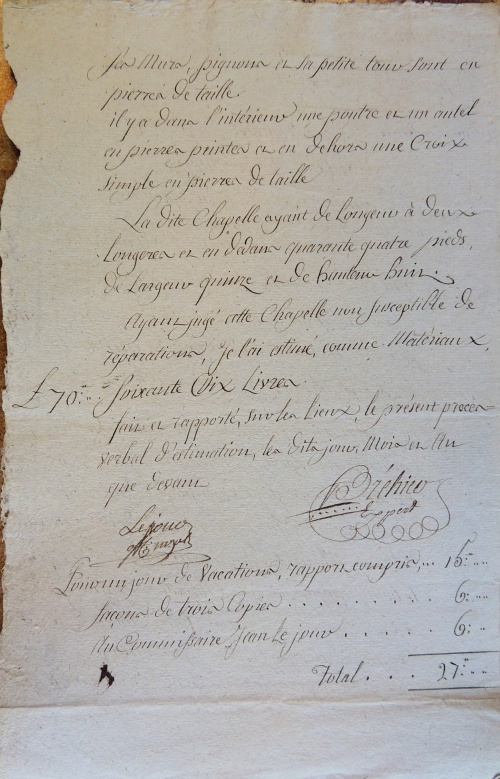 Ses Murs, pignons et sa petite tour sont en
pierres de taille.
il y a dans l'intérieur une poutre et un autel
en pierres peintes et en dehors une Croix
simple en pierres de taille
La dite Chapelle ayant de Longeur à deux
Longeres et en dedans quarante quatre pieds,
de Largeur quinze et de hauteur huit.
Ayant jugé cette Chapelle non susceptible de
réparations, Je l'ai estimé, comme Matériaux,
₶ 70 " " Soixante Dix Livres
fait et rapporté, sur les Lieux, le présent procès=
verbal d'estimation, les dits jour, Mois et An
que devant
Bréhier
Expert
Lejour
Pour un jour de Vacations, rapport compris, .. 15 " "
façons de trois Copies . . . . . . . . . 6 " "
Au Commissaire Jean Le jour . . . . . 6 " "
Total . . . 27 " "